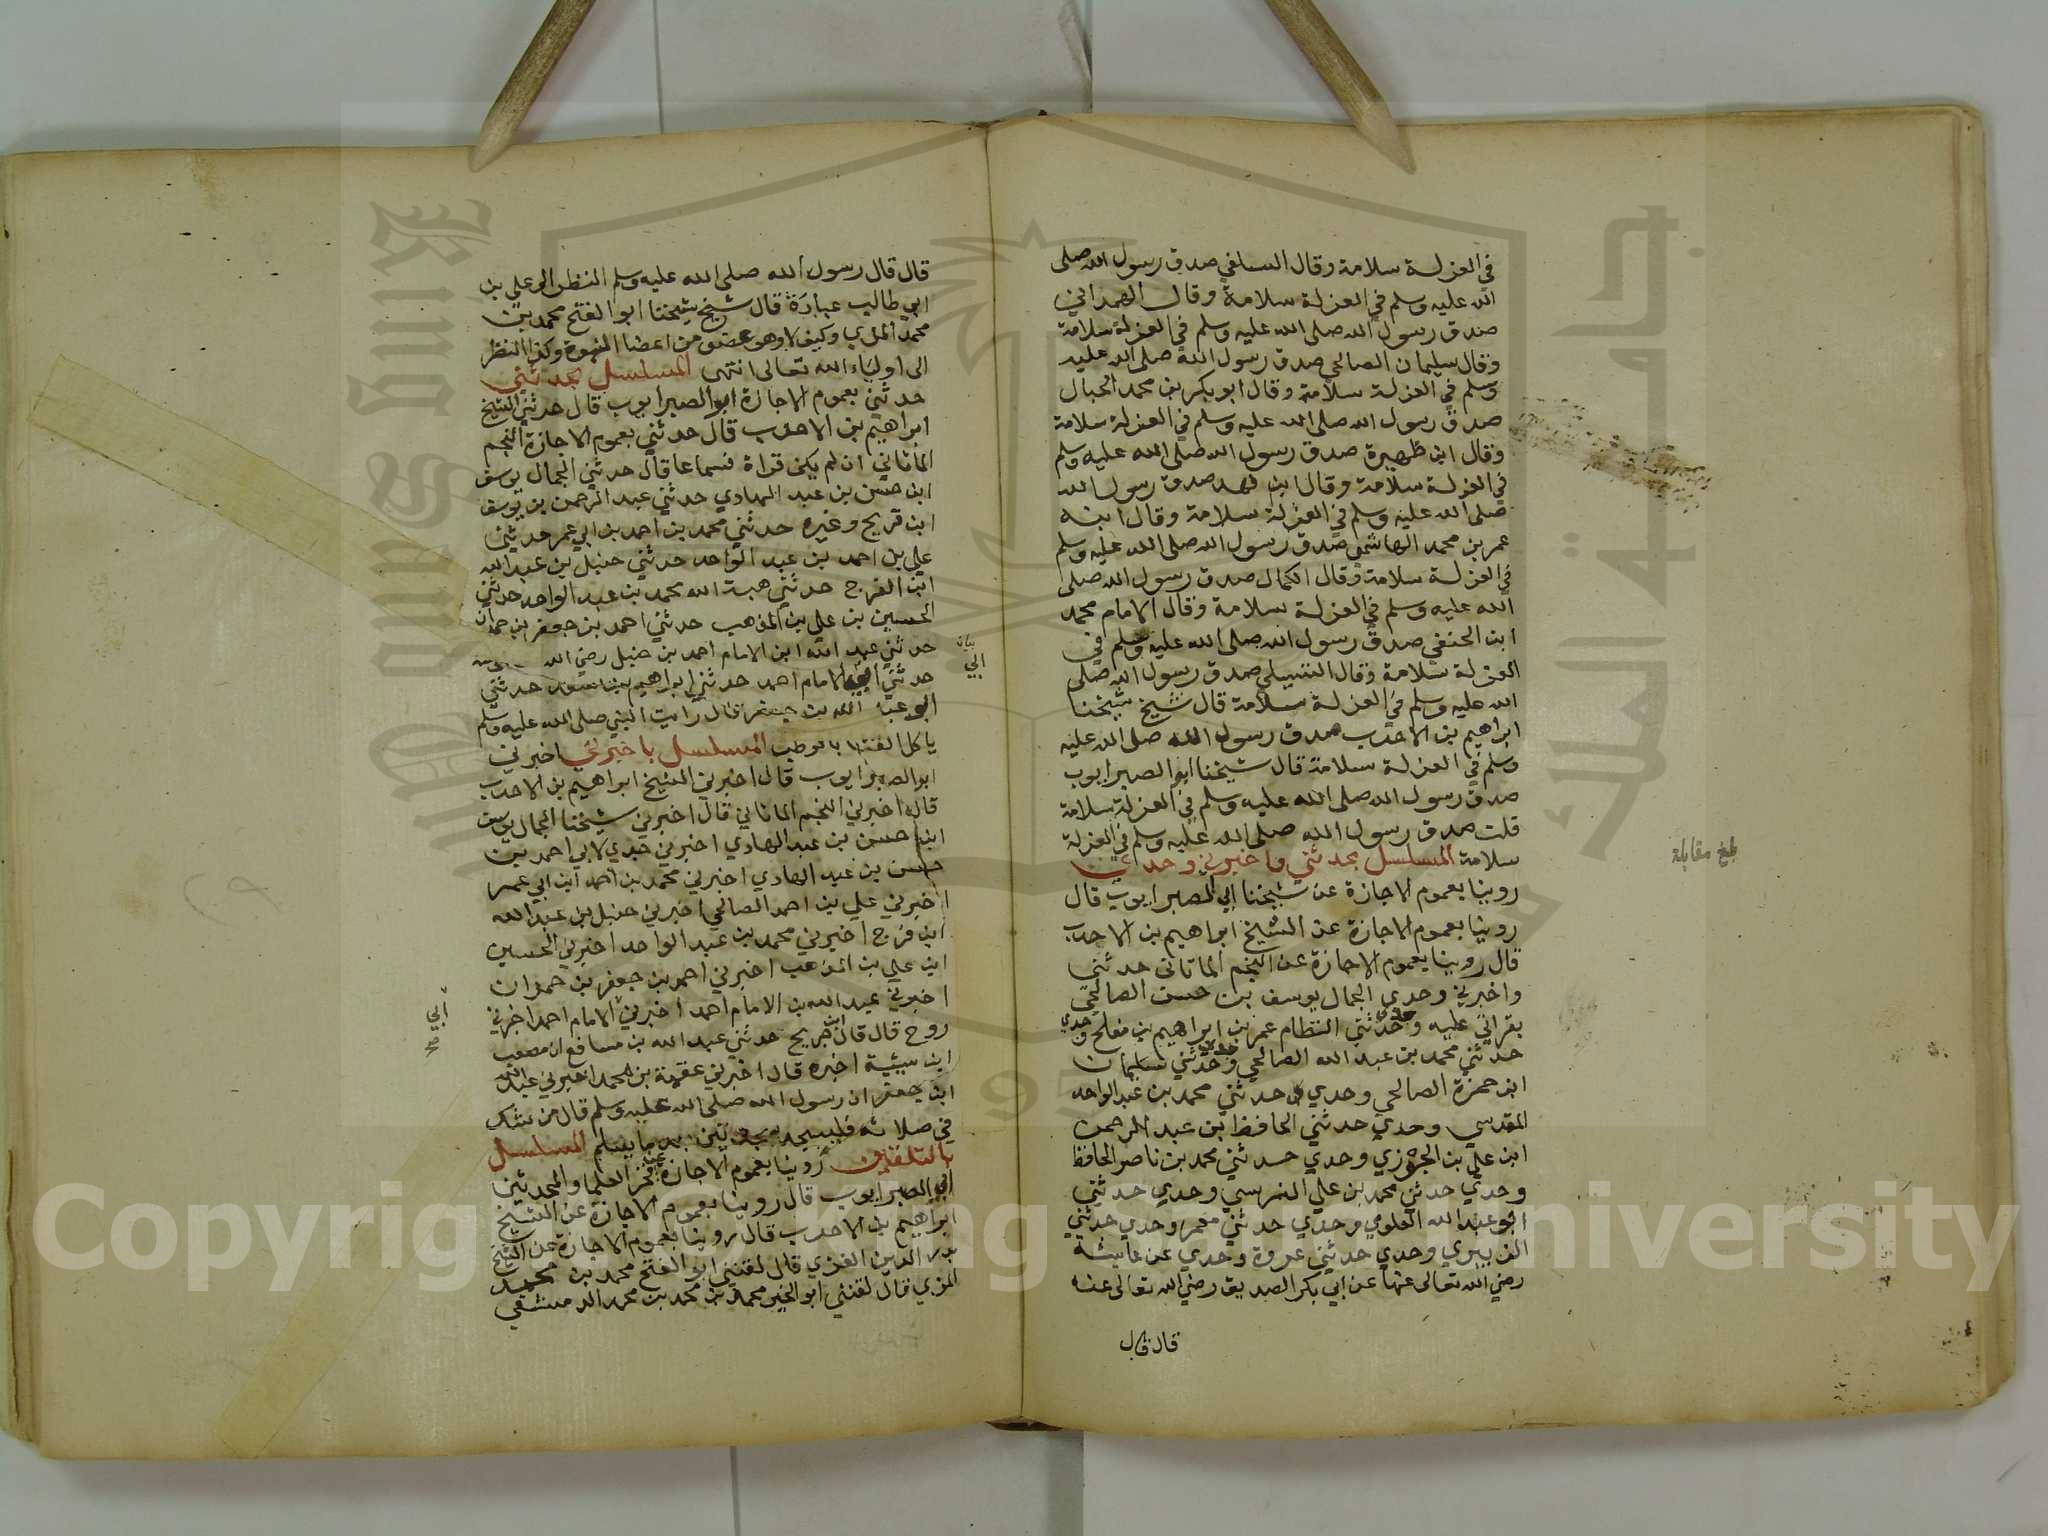 في العزلة سلامة وقال السلفي صدق رسول الله صلى
الله عليه وسلم في العزلة سلامة وقال الهمداني
صدق رسول الله صلى الله عليه وسلم في العزلة سلامة
وقال سليمان الصالحي صدق رسول الله صلى الله عليه
وسلم في العزلة سلامة وقال ابو بكر بن محمد الحبال
صدق رسول الله صلى الله عليه وسلم في العزلة سلامة
وقال ابن ظهيرة صدق رسول الله صلى الله عليه وسلم
في العزلة سلامة وقال ابن فهد صدق رسول الله
صلى الله عليه وسلم في العزلة سلامة وقال ابنه
عمر بن محمد الهاشمي صدق رسول الله صلى الله عليه وسلم
في العزلة سلامة وقال الكمال صدق رسول الله صلى
الله عليه وسلم في العزلة سلامة وقال الامام محمد
ابن الحنفي صدق رسول الله صلى الله عليه وسلم في
العزلة سلامة وقال صدق رسول الله صلى
الله عليه وسلم في العزلة سلامة قال شيخ شيخنا
ابراهيم بن الاحدب صدق رسول الله صلى الله عليه
وسلم في العزلة سلامة قال شيخنا ابو الصبر ايوب
صدق رسول الله صلى الله عليه وسلم في العزلة سلامة
قلت صدق رسول الله صلى الله عليه وسلم في العزلة
سلامة المسلسل بحدثني واخبرني وحدي
روينا بعموم الاجازة عن شيخنا ابي الصبر ايوب قال
روينا بعموم الاجازة عن الشيخ ابراهيم بن الاحدب
قال روينا بعموم الاجازة عن النجم الماتاني حدثني
واخبرني وحدي الجمال يوسف بن حسن الصالحي
بقراتي عليه وحدي حدثني النظام عمر بن ابراهيم بن مفلح وحدي
حدثني محمد بن عبد الله الصالحي وحدي حدثني سليمان
ابن حمزة الصالحي وحدي حدثني محمد بن عبد الواحد
المقدسي وحدي حدثني الحافظ ابن عبد الرحمن
ابن علي بن الجوزي وحدي حدثني محمد بن ناصر الحافظ
وحدي حدثني محمد بن علي النرسي وحدي حدثني
ابو عبد الله العلوي وحدي حدثني معمر وحدي حدثني
الزبيري وحدي حدثني عروة وحدي عن عايشة
رضي الله تعالى عنها عن ابي بكر الصديق رضي الله تعالى عنه
قال قال
بلغ مقابلة
قال قال رسول الله صلى الله عليه وسلم النظر الى علي بن
ابي طالب عبادة قال شيخ شيخنا ابو الفتح محمد بن
محمد المزي وكيف لا وهو عضو من اعضا النبوة وكذا النظر
الى اولياء الله تعالى انتهى المسلسل بحدثني
حدثني بعموم الاجازة ابو الصبر ايوب قال حدثني الشيخ
ابراهيم بن الاحدب قال حدثني بعموم الاجازة النجم
الماتاني ان لم يكن قراة فسماعا قال حدثني الجمال يوسف
ابن حسن بن عبد الهادي حدثني عبد الرحمن بن يوسف
ابن قريج وغيره حدثني محمد بن احمد بن ابي عمر حدثني
علي بن احمد بن عبد الواحد حدثني حنبل بن عبد الله
ابن الفرج حدثني هبة الله محمد بن عبد الواحد حدثني
الحسين بن علي بن المذهب حدثني احمد بن جعفر بن حمدان
حدثني عبد الله ابن الامام احمد بن حنبل رضي الله
حدثني ابي الامام احمد حدثني ابراهيم بن سعد حدثني
ابو عبد الله بن جعفر قال رايت النبي صلى الله عليه وسلم
ياكل القثا بالرطب المسلسل باخبرني اخبرني
ابو الصبر ايوب قال اخبرني الشيخ ابراهيم بن الاحدب
قال اخبرني النجم الماتاني قال اخبرني شيخنا الجمال يوسف
ابن حسن بن عبد الهادي اخبرني جدي لابي احمد بن
حسن بن عبد الهادي اخبرني محمد بن احمد ابن ابي عمر
اخبرني علي بن احمد الصالحي اخبرني حنبل بن عبد الله
ابن فرج اخبرني محمد بن عبد الواحد اخبرني الحسين
ابن علي بن المذهب اخبرني احمد بن جعفر بن حمدان
اخبرني عبد الله بن الامام احمد اخبرني الامام احمد اخبرني
روح قال قال ابن جريج حدثني عبد الله بن مسافع ان مصعب
ابن شيبة اخبره قال اخبرني عقبة بن محمد اخبرني عبد الله
ابن جعفر ان رسول الله صلى الله عليه وسلم قال من شك
في صلاته فليسجد سجدتين بعد ما يسلم المسلسل
بالتلقين روينا بعموم الاجازة عن فخر العلما والمحدثين
ابي الصبر ايوب قال روينا بعموم الاجازة عن الشيخ
ابراهيم بن الاحدب قال روينا بعموم الاجازة عن الشيخ
بدر الدين الغزي قال لقنني ابو الفتح محمد بن محمد
المزي قال لقنني ابو الخير محمد بن محمد بن محمد الدمشقي
بيان
ابي
ابي
صح
Copyright © King Saud University
King Saud University
جامعة الملك سعود
1957